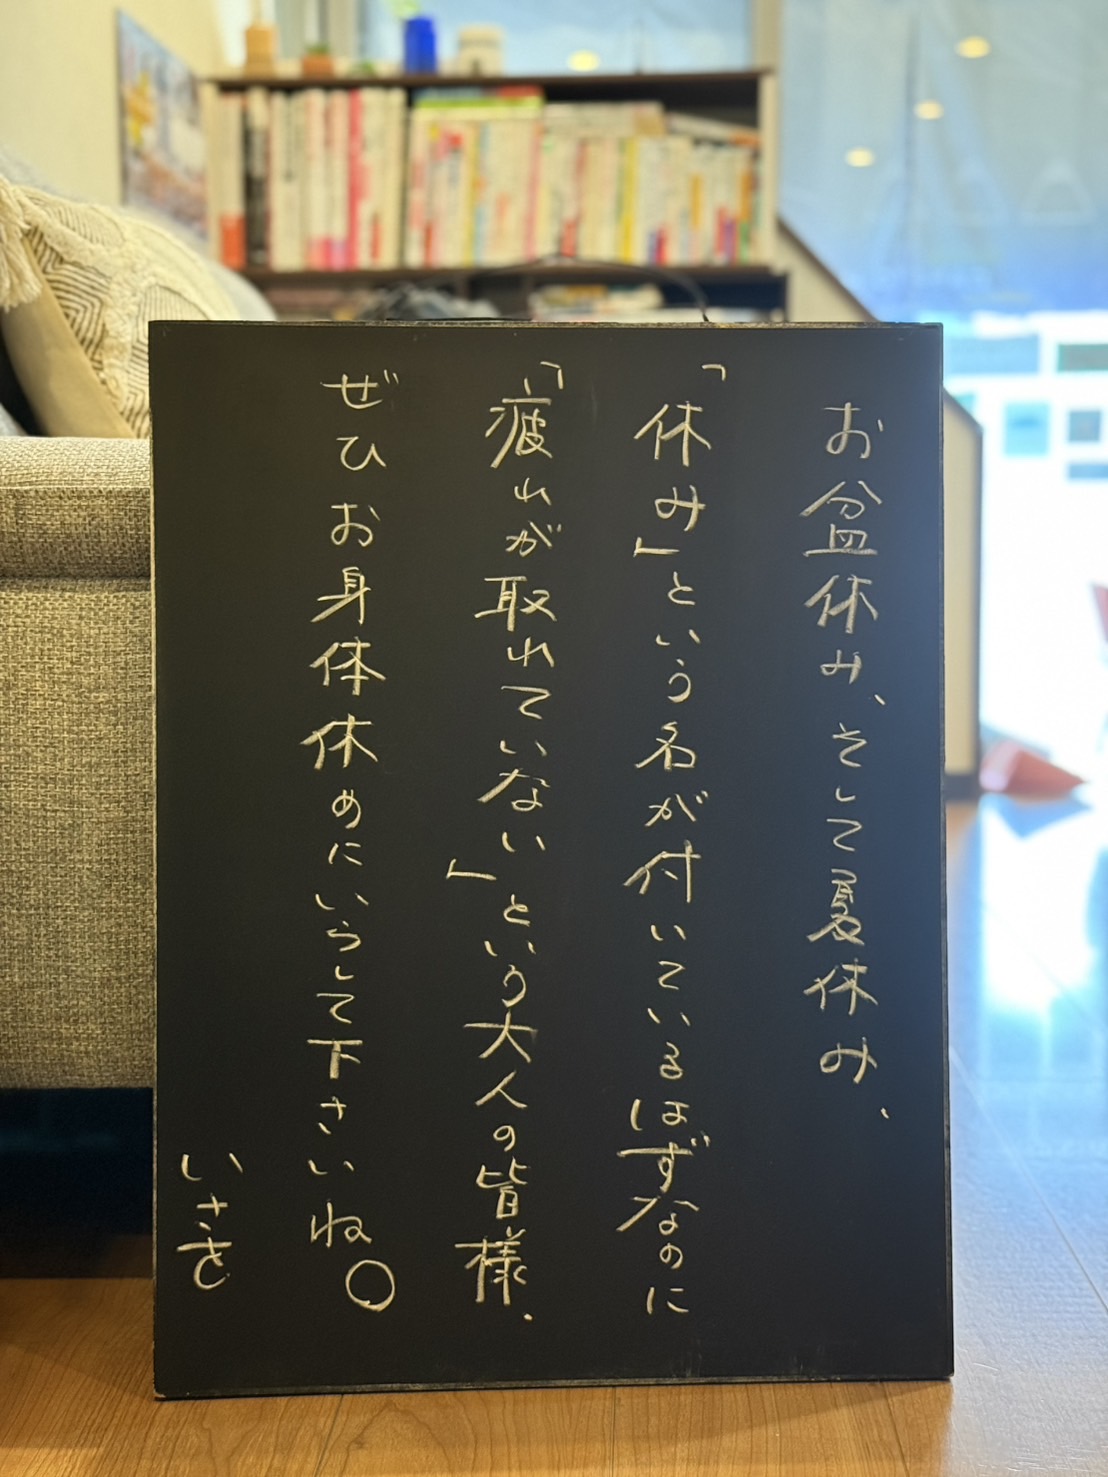 お盆休み、そして夏休み、
「休み」という名が付いているはずなのに
「疲れが取れていない」という大人の皆様、
ぜひお身体休めにいらして下さいね。
いさを